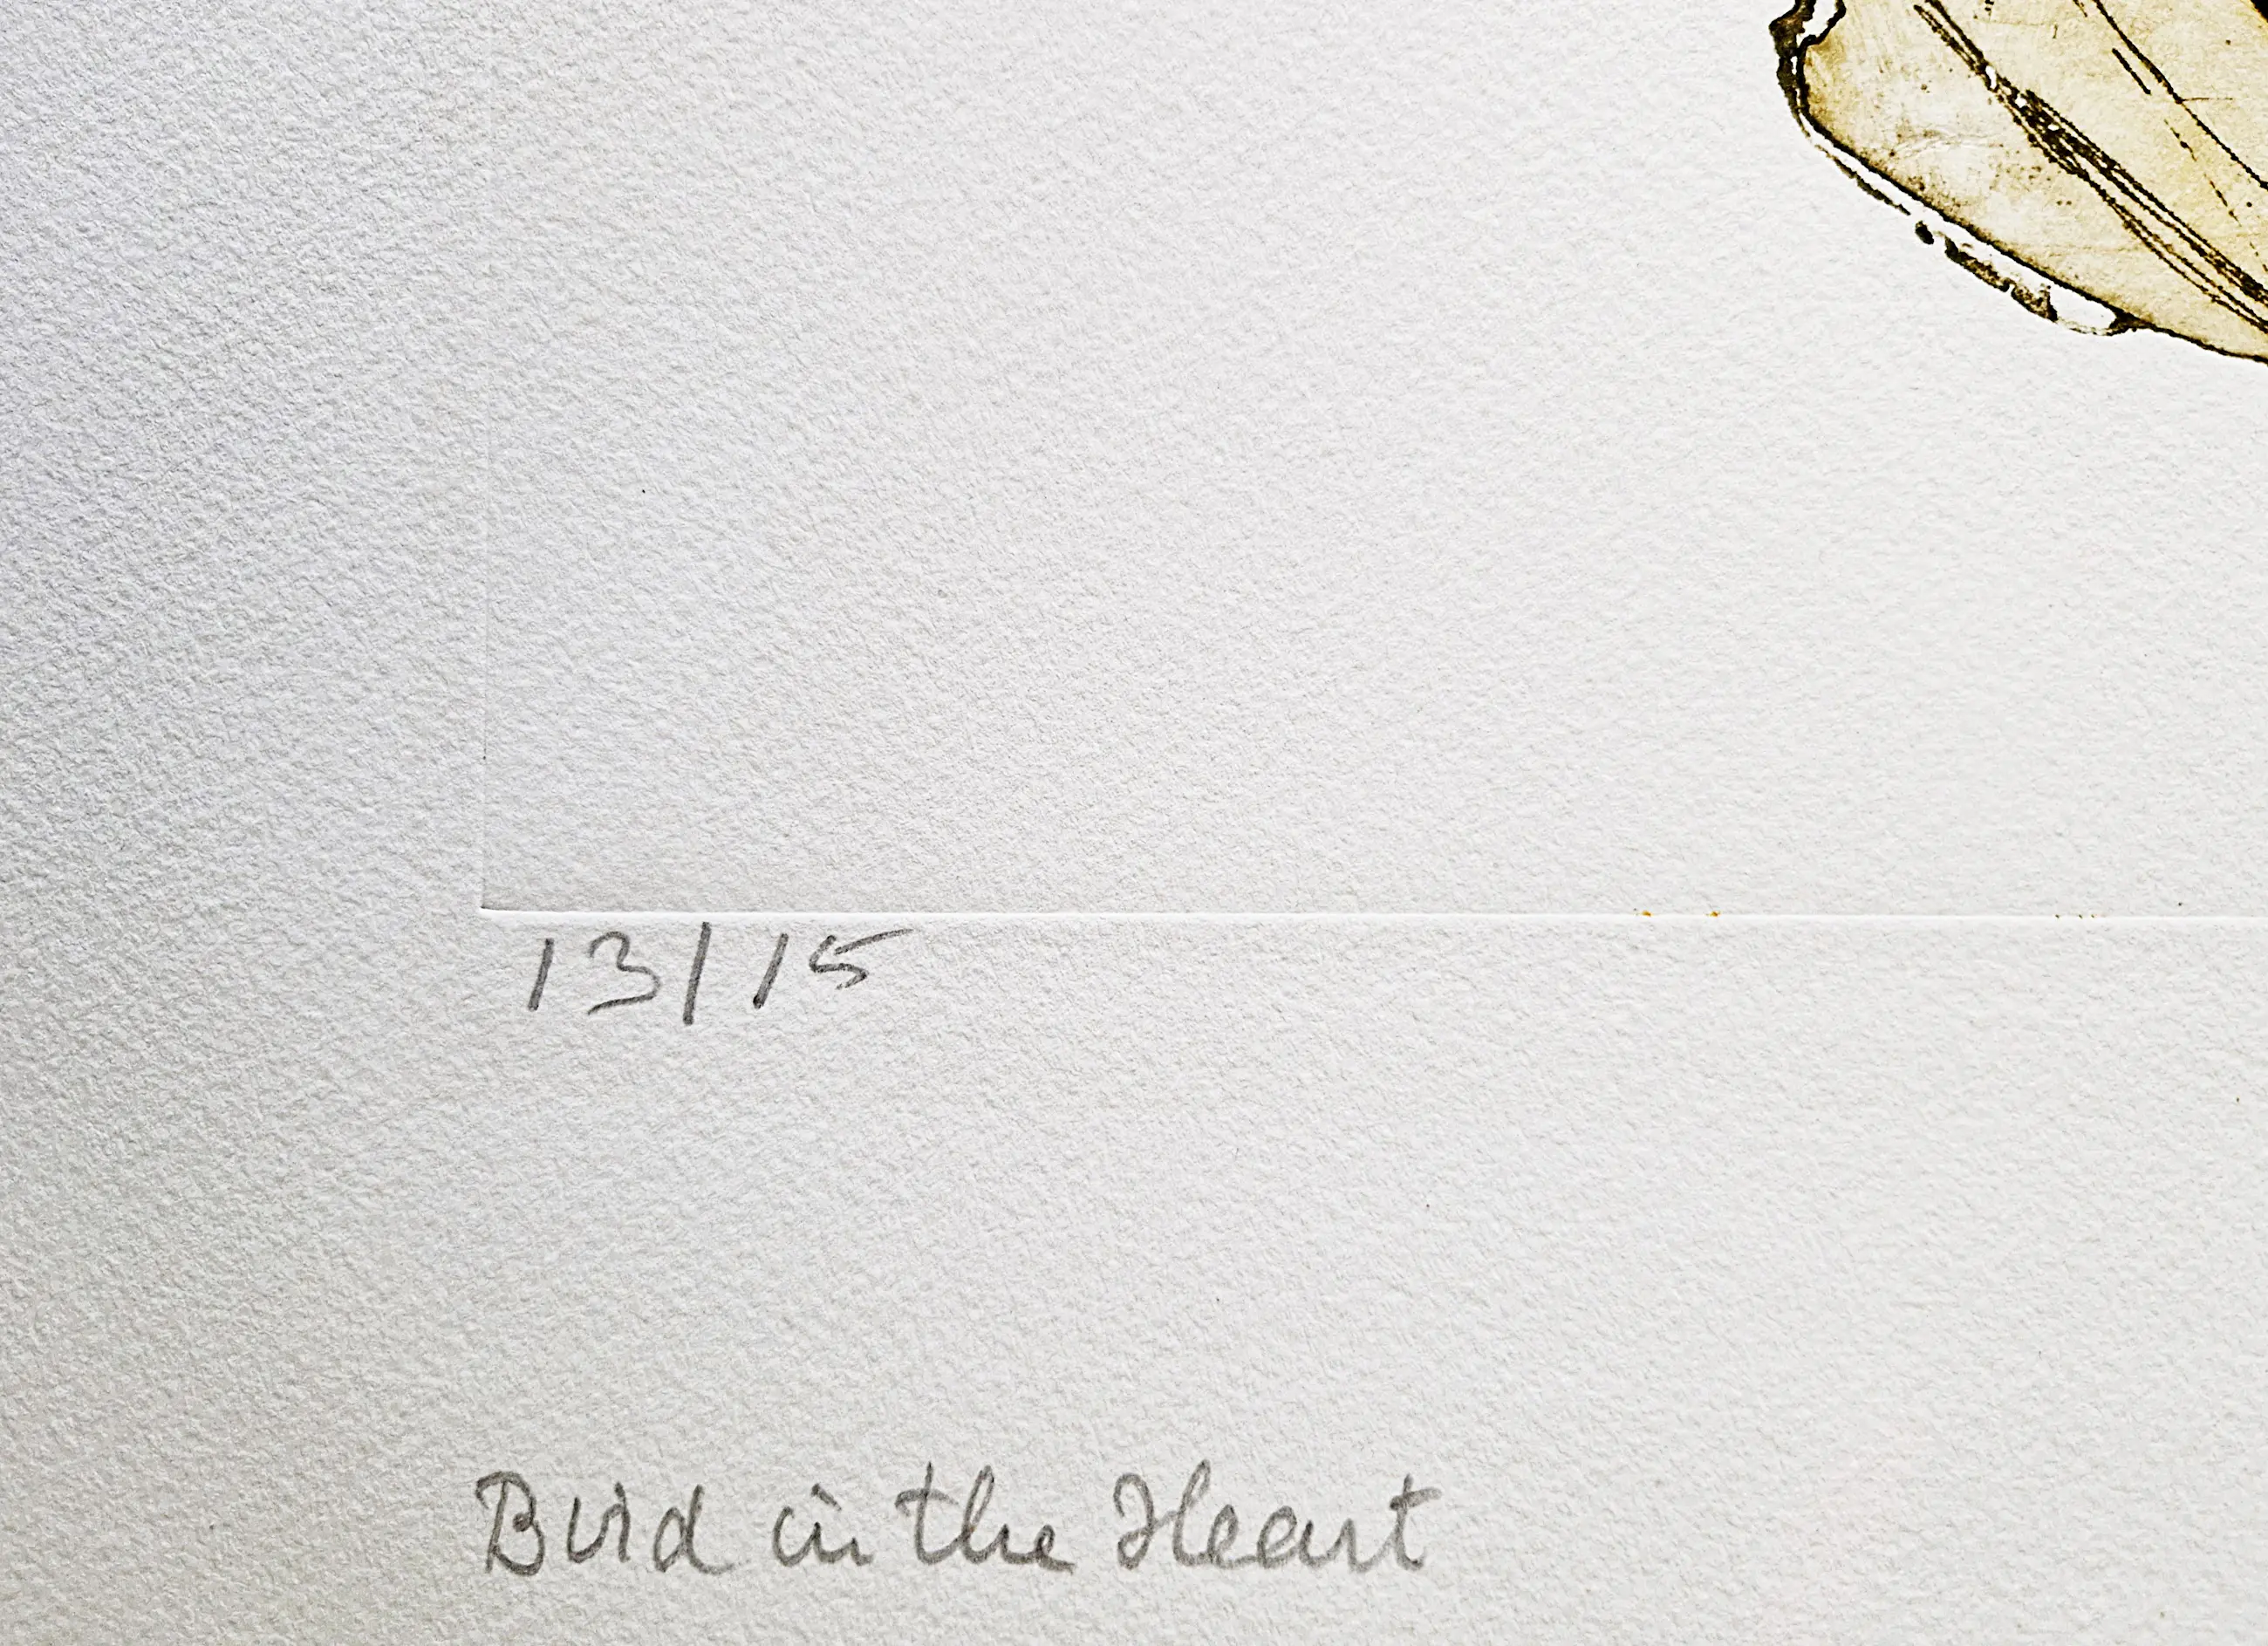 13/15
Bird in the Heart